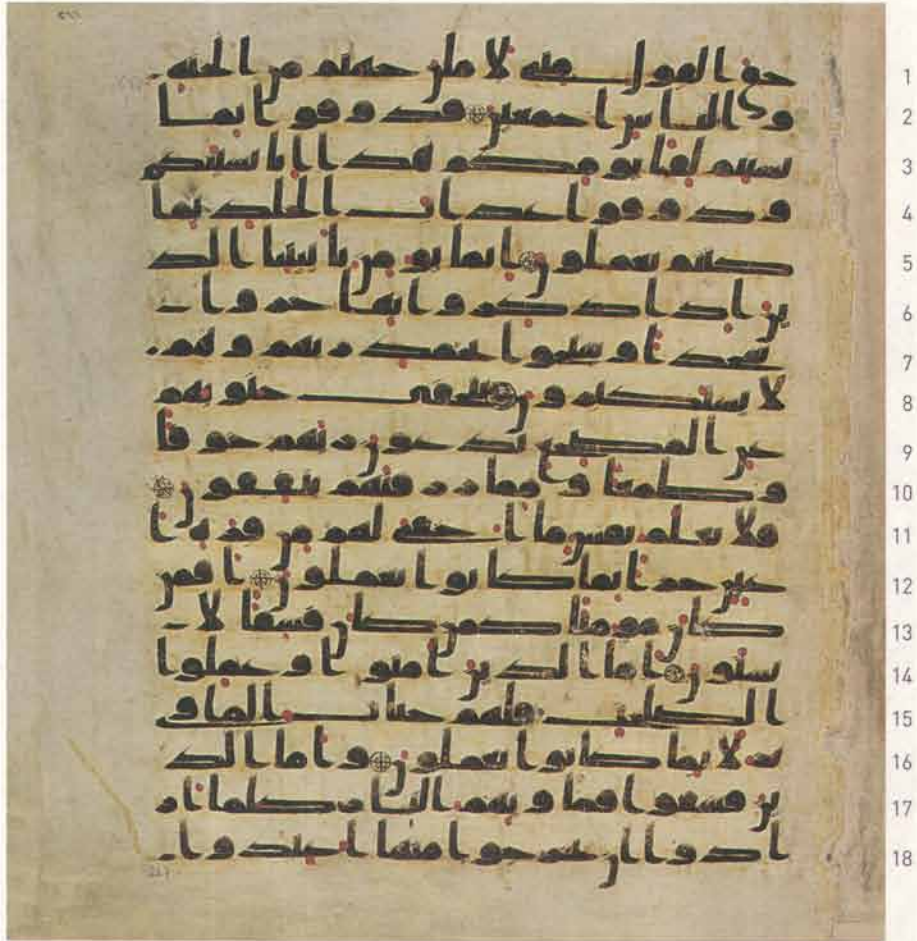 حق القول مني لاملن جهنم من الجنه 1
و الناس اجمعين فذوقوا بما 2
نسيتم لقا يومكم هذا انا نسينكم 3
وذوقوا عذاب الخلد بما 4
كنتم تعملون انما يومن بايتنا الذ 5
ين اذا ذكروا بها خروا 6
سجدا وسبحوا بحمد ربهم وهم 7
لا يستكبرون تتجفى جنوبهم 8
عن المضجع يدعون ربهم خوفا 9
وطمعا ومما رزقنهم ينفقون 10
فلا تعلم نفس ما اخفي لهم من قره ا 11
عين جزا بما كانوا يعملون افمن 12
كان مومنا كمن كان فسقا لا 13
يستون اما الذين امنوا وعملوا 14
الصلحت فلهم جنات الماو 15
ى نزلا بما كانوا يعملون واما الذ 16
ين فسقوا فماويهم النار كلما ار 17
ادوا ان يخرجوا منها اعيدوا 18